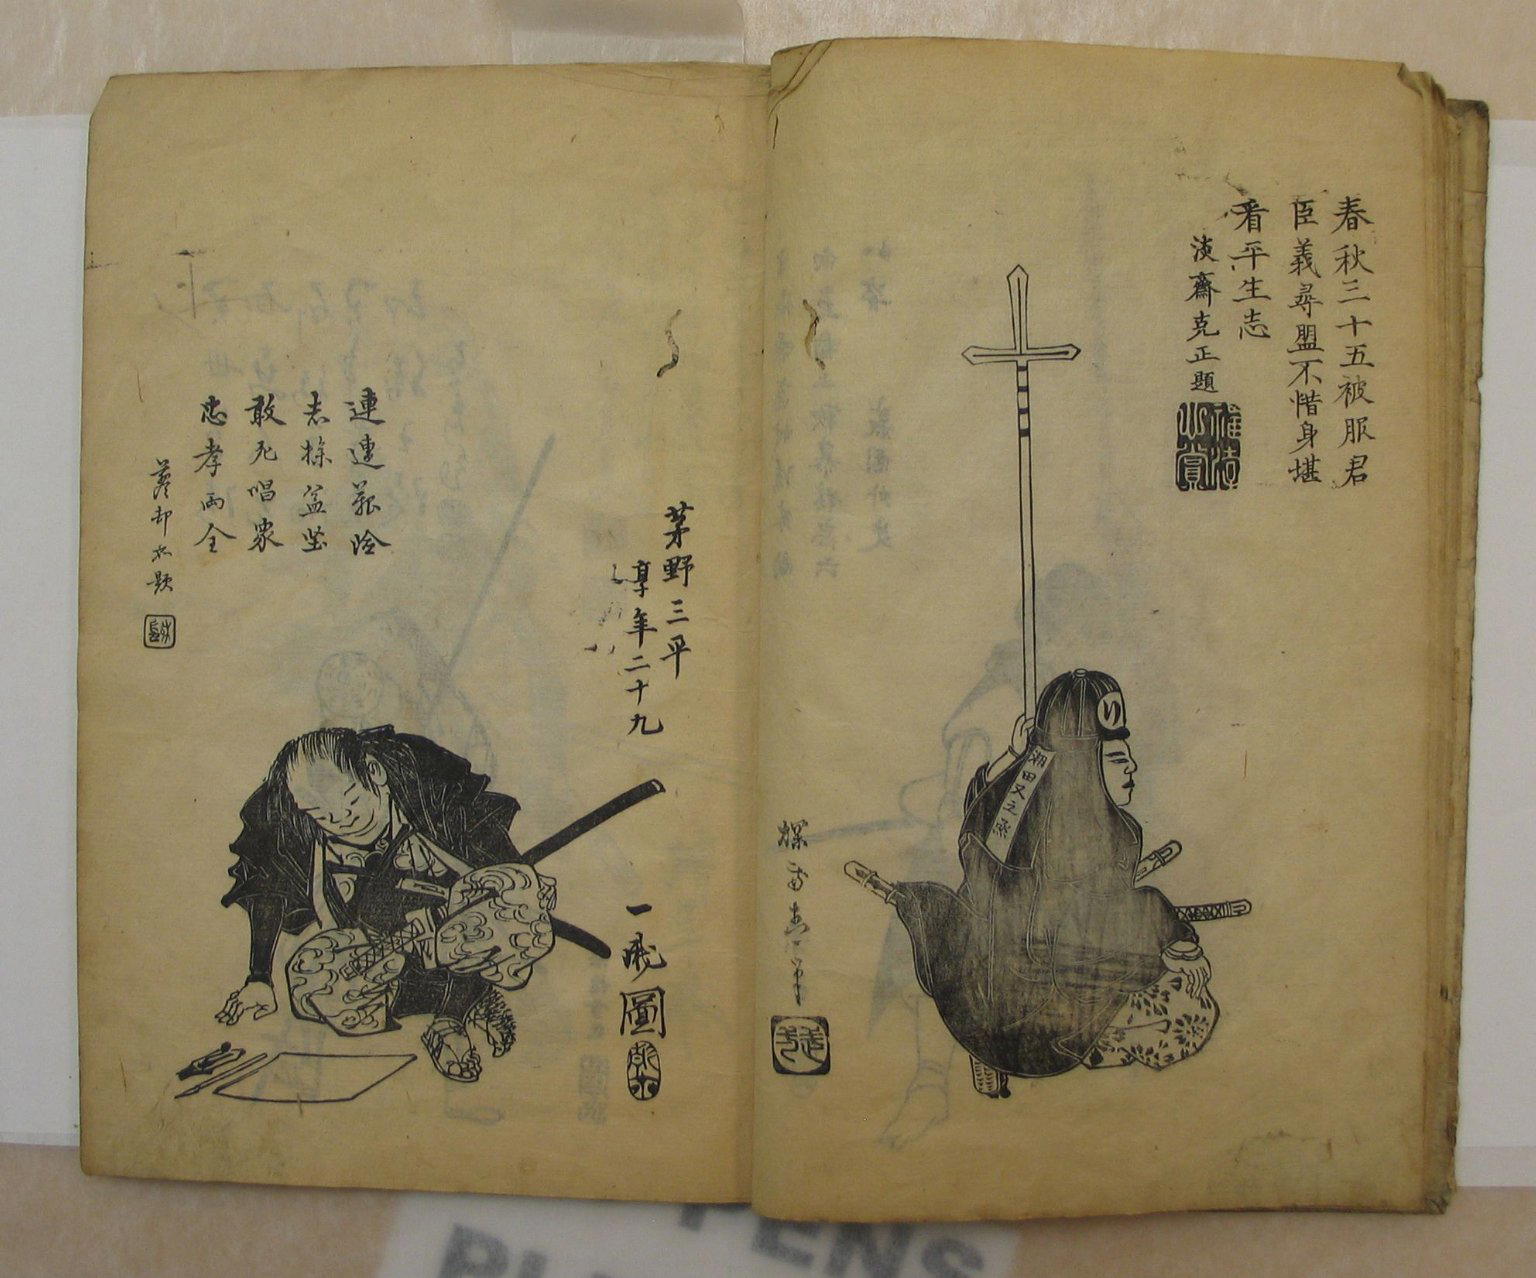 春秋三十五被服君
臣義尋盟不惜身堪
看平生志
淡齋克正題
り
潮田又之丞
茅野三平
享年二十九
連連艱险
志操益堅
敢死唱衆
忠孝両全
一
圖
PENS